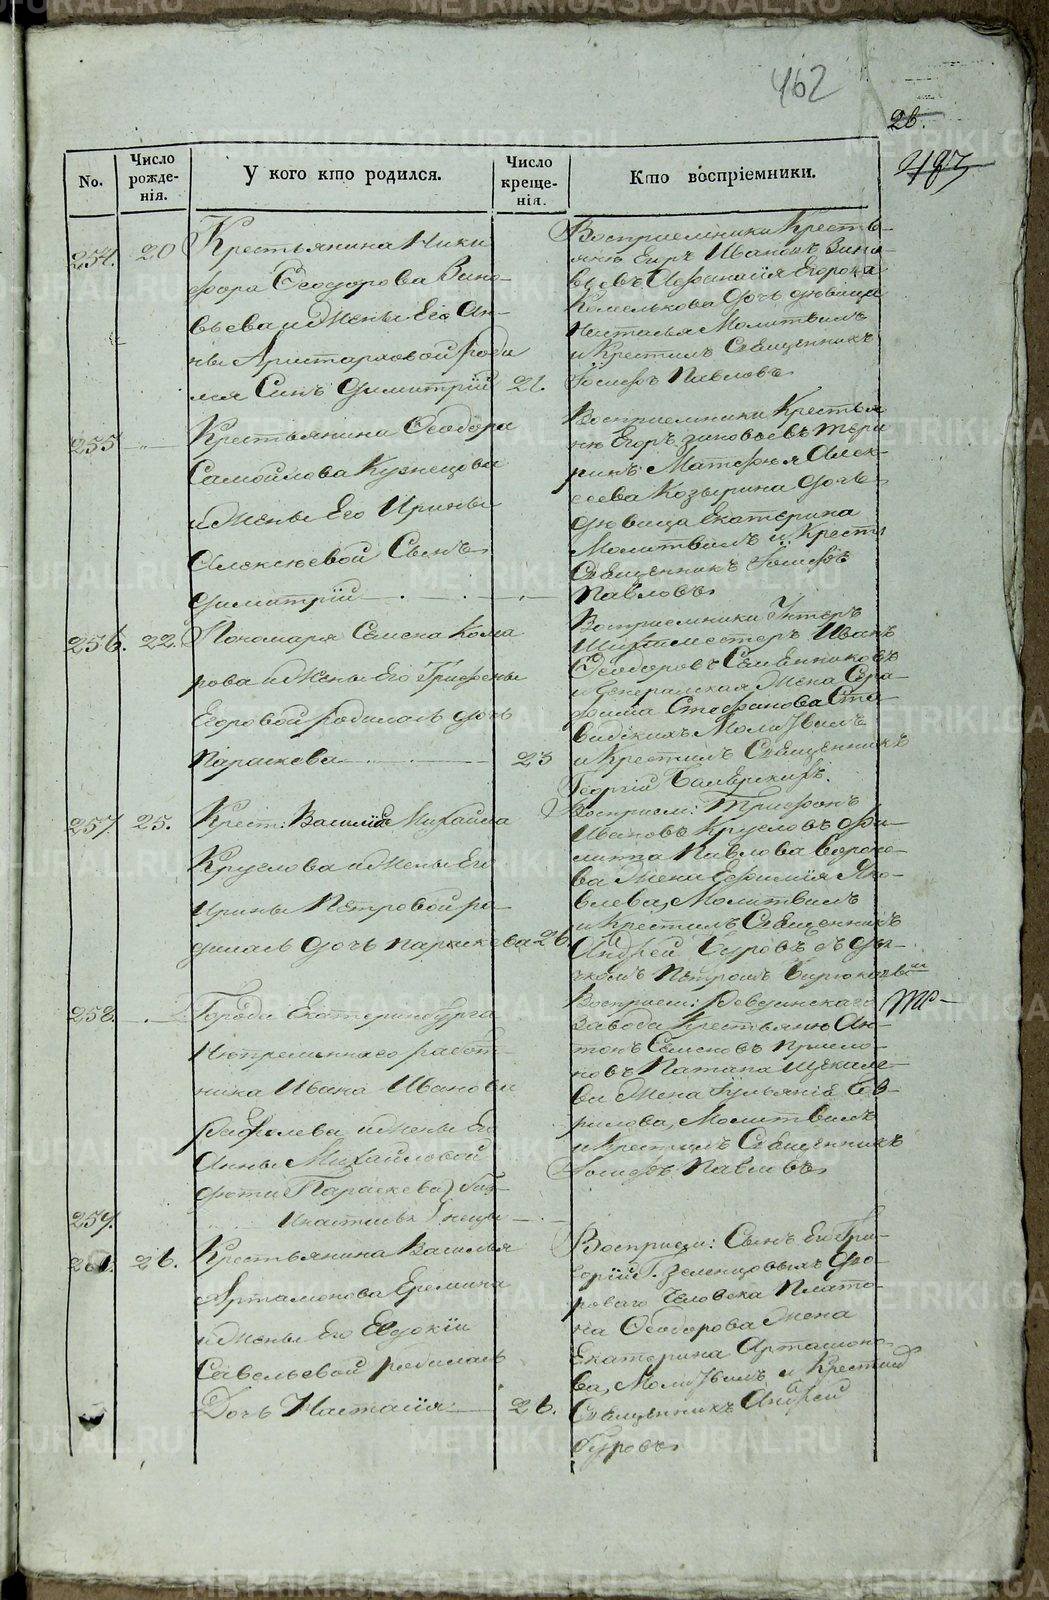 462
26.
483
No.
Число рожде-нія.
У кого кто родился.
Число креще-нія.
Кто воспріемники.
254. 20
Крестьянина Ники
фора Ѳеодорова Зино-
вьева и Жены Его Ан-
ны Аристарховой роди
лся Сынъ Димитрій 21.
Восприемники Крестья-
нѣ Егоръ Ивановъ Зино-
вьевъ Афанасія Егорова
дочь дѣвица
Наталья Молитвилъ
и Крестилъ Священникъ
Іосифъ Павловъ
255
Крестьянина Ѳеодора
Самойлова Кузнецова
и Жены Его Ирины
Алексѣевой Сынъ
Димитрій
Восприемники Крестья
нѣ Егоръ Зиновьевъ
Матфея Алек-
сеева Козырина дочь
дѣвица Екатерина
Молитвилъ и Крести
Священникъ Іосифъ
Павловъ
256. 22.
Пономаря Семена Кома
рова и Жены Его Грифены
Егоровой родилась дочь
Параскева 23
Восприемники
Шихтмейстеръ Иванъ
Ѳеодоровъ
и Генеральская Жена Сера-
фима Стефанова
Молитвилъ
и Крестилъ Священникъ
Георгій
257 25.
Крест: Василія Михайла
Круглова и Жены Его
Ирины Петровой ро-
дилась дочь Параскева 26
Восприем: Трифонъ
Ивановъ Кругловъ Фи-
липпа Павлова Ворони-
ва Жена Ефимія Яко-
влева, Молитвилъ
и Крестилъ Священникъ
Андрей съ дья-
чкомъ Петромъ Бирюковы
258.
Города Екатеринбурга
работ-
ника Ивана Иванова
и Жены Его
Анны Михайловой
Параскева
259.
Анастасія
Восприем: Ревдинскаго
Завода Крестьянѣ Ан-
тонъ Семеновъ
Патапа
ва Жена Іульянія Га-
рилова, Молитвилъ
и Крестилъ Священникъ
Іосифъ Павловъ
26.
Крестьянина Василья
Артамонова Еремина
и Жены Его Евдокіи
Савельевой родилась
Дочь Настасія 26.
Восприем: Сынъ Его Гри-
горій Г. Зеленцовыхъ Дво-
роваго Человека Плато-
на Ѳеодорова Жена
Екатерина Артамоно-
ва, Молитвилъ и Крестилъ
Священникъ Андрей